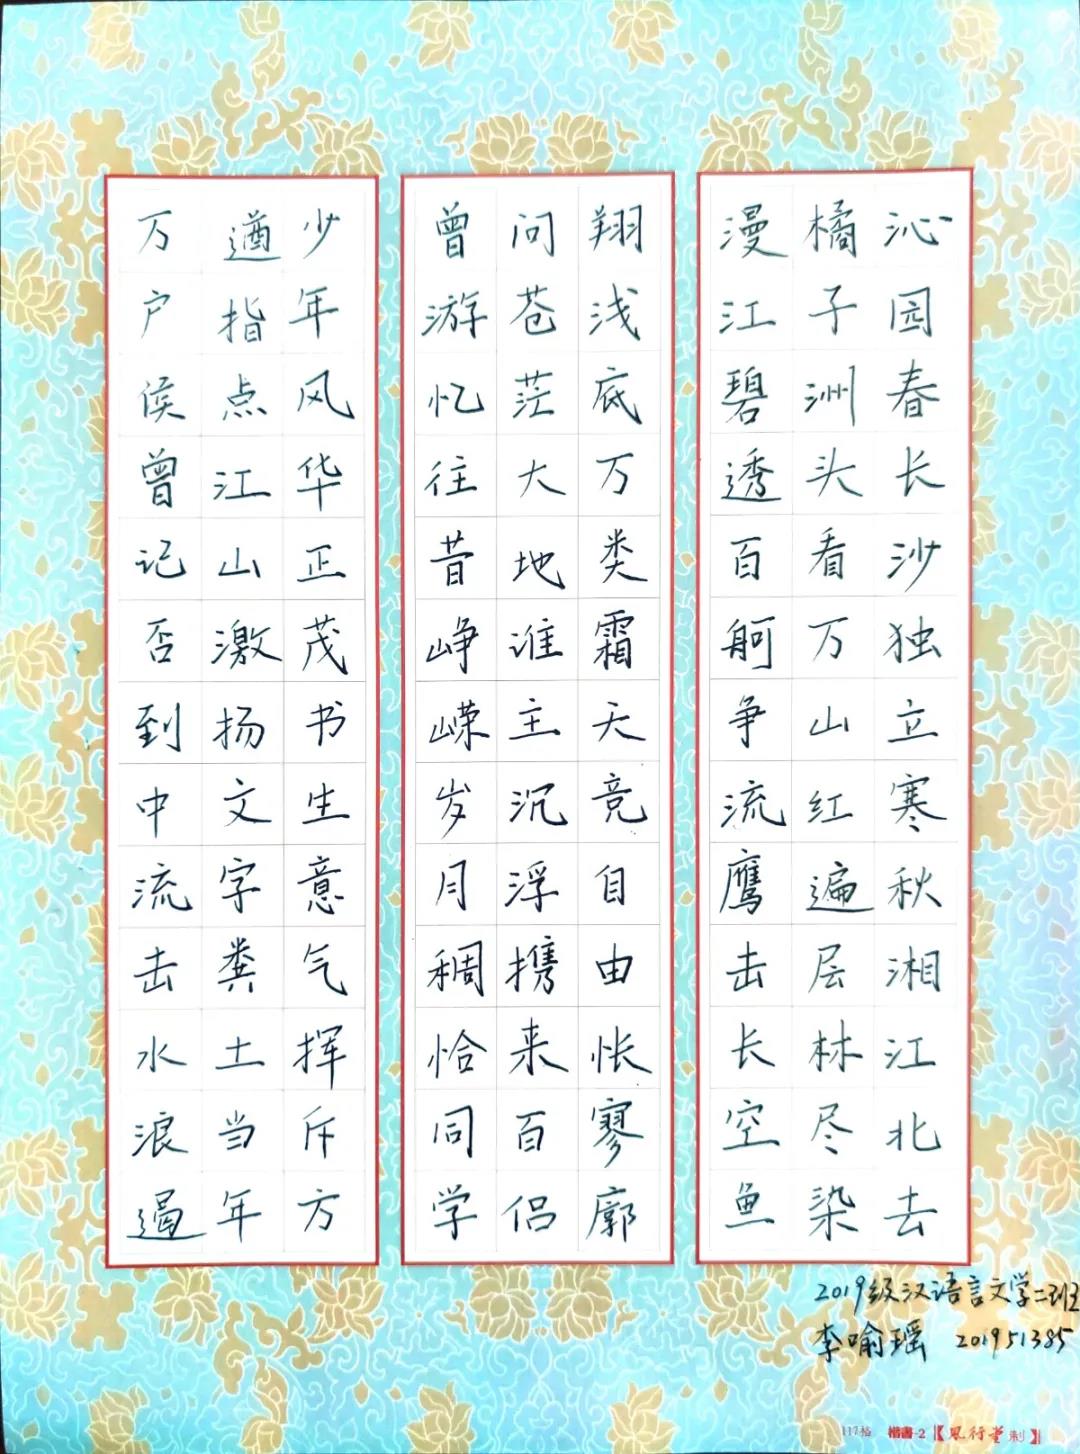 沁园春长沙独立寒秋湘江北去
橘子洲头看万山红遍层林尽染
漫江碧透百舸争流鹰击长空鱼
翔浅底万类霜天竞自由怅寥廓
问苍茫大地谁主沉浮携来百侣
曾游忆往昔峥嵘岁月稠恰同学
少年风华正茂书生意气挥斥方
遒指点江山激扬文字粪土当年
万户侯曾记否到中流击水浪遏
2019级汉语言文学二班
李喻瑶 201951385
117格 楷書-2【風行堂制】